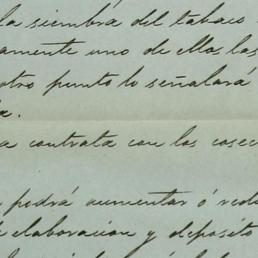 la siembra del tabaco
amente uno de ellos las
otro punto lo señalará
a contrata con los cosec
podrá aumentar ó redu
elaboracion y depósito